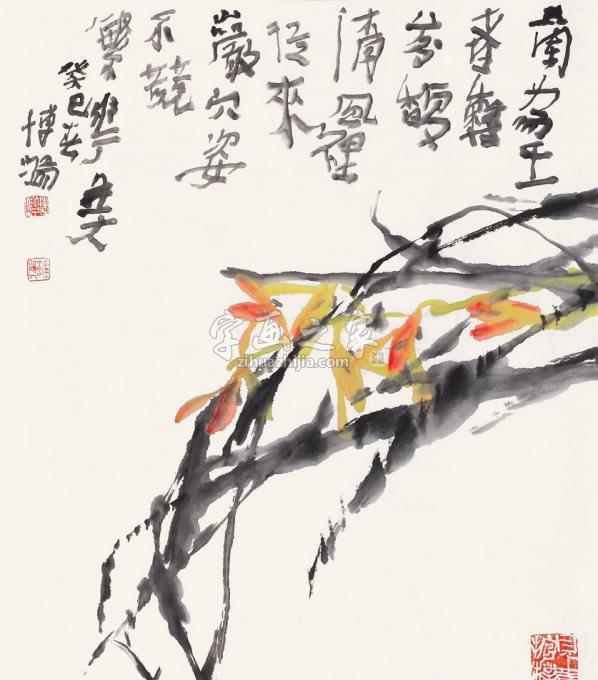 蘭為王
者香
芬馥
清風裡
從來
巖穴姿
不競
繁華美
癸巳春
字画之家
zihuazhijia.com